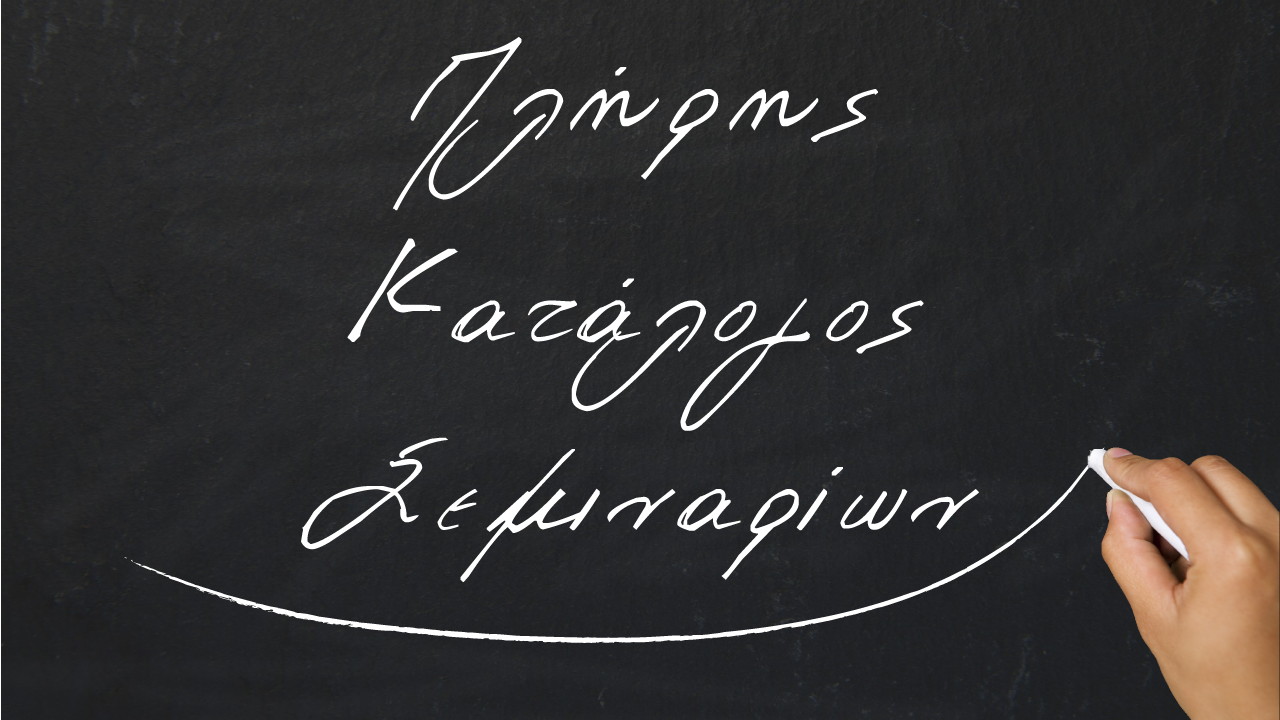 Πλήρης
Κατάλογος
Σεμιναρίων